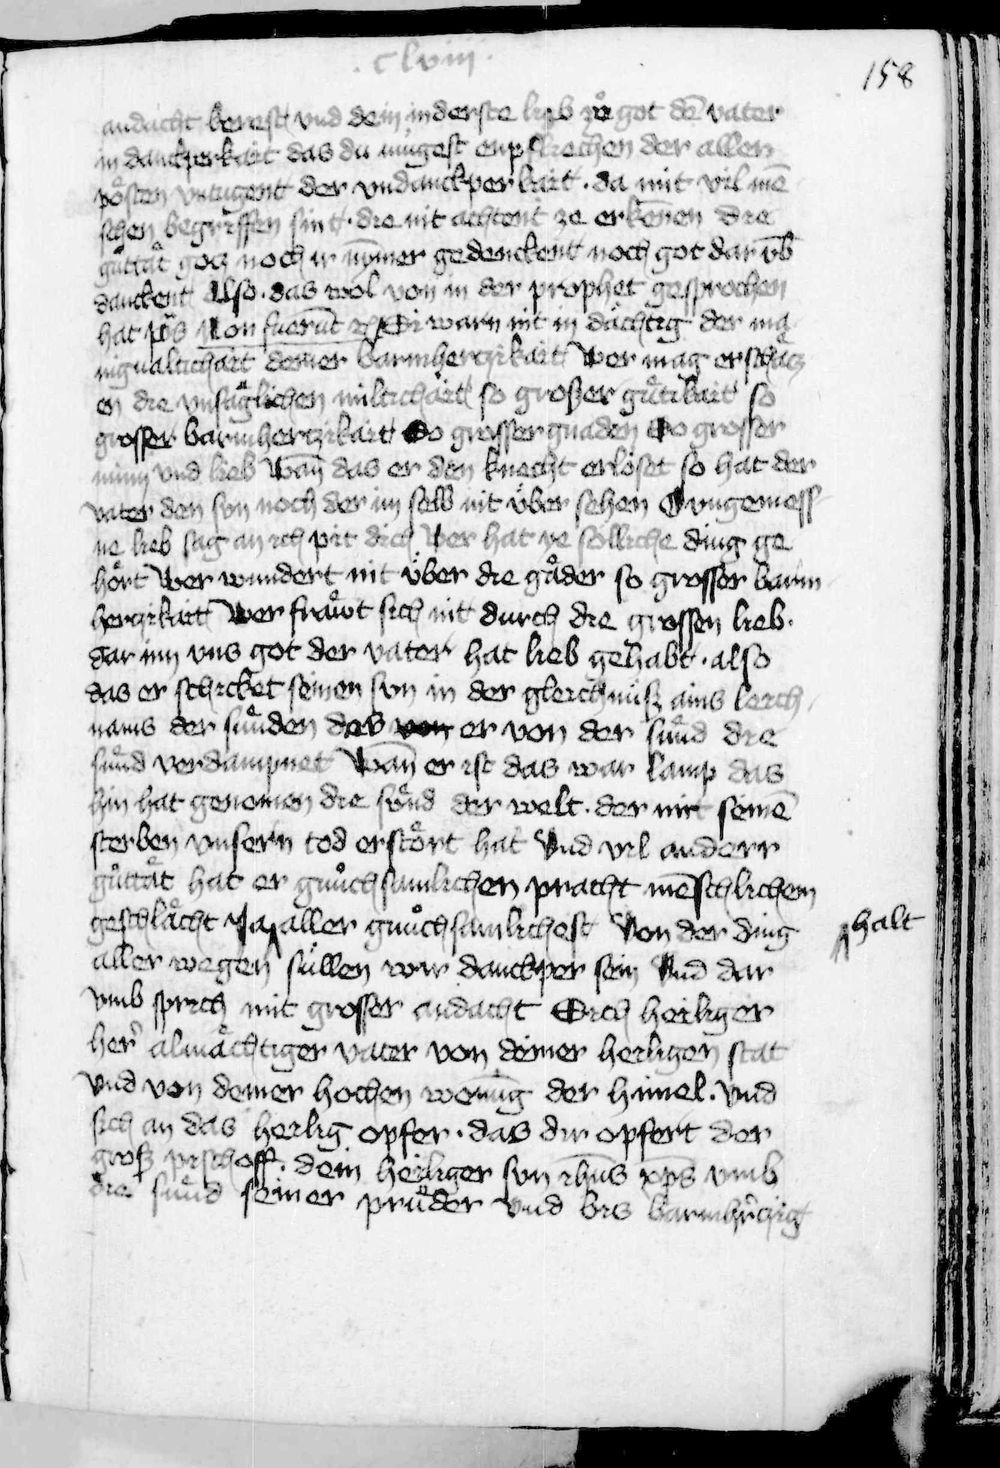 . clviii .
158
andacht berest vnd dein inderste lieb zů got dē vater
in danckperkait das du mügest enpfliechen der aller
pösten vntugent der vndanckperkait . da mit vil mē
schen begriffen sint . die nit achtent ze erkēnen die
gůttät gocz noch ir nymer gedenckent noch got dar vb̄
danckent Also . das wol von in der prophet gesprochen
hat pͦs Non fuerūt Si warn nit in dächtig der ma
nigualtichait deiner barmherczikait Wer mag erschäcz
en die vnsäglichen miltichait so groẞer gůtikait so
grosser barmherczikait So grosser gnaden So grosser
minn vnd lieb Wan̄ das er den knecht erlöset so hat der
vater den sun noch der im selb nit über sehen O vngemess
ne lieb sag an ich pit dich Wer hat ye sölliche ding ge
hört Wer wundert nit über die gåder so grosser barm
herczikait Wer fräwt sich nit durch die grossen lieb .
dar inn vns got der vater hat lieb gehabt . also
das er schicket seinen sun in der gleichnüsz ains leich
nams der sünden das von er von der sünd die
sünd verdampnet Wan̄ er ist das war lamp das
hin hat genomen die sünd der welt . der mit seinē
sterben vnsern tod erstört hat Vnd vil anderr
gůttät hat er gnůchsamlichen pracht mēschlichem
geschlächt Ja aller gnůchsamlichost Von der ding
halt
aller wegen süllen wir danckper sein Vnd dar
vmb sprich mit grosser andacht Sich heiliger
her̄ almächtiger vater von deiner heiligen stat
Vnd von deiner hochen wonūg der himel . Vnd
sich an das heilig opfer . das dir opfert der
groẞ pischoff . dein heiliger sun ihūs xp̄s vmb
die sünd seiner prüder Vnd bis barmhr̄czig